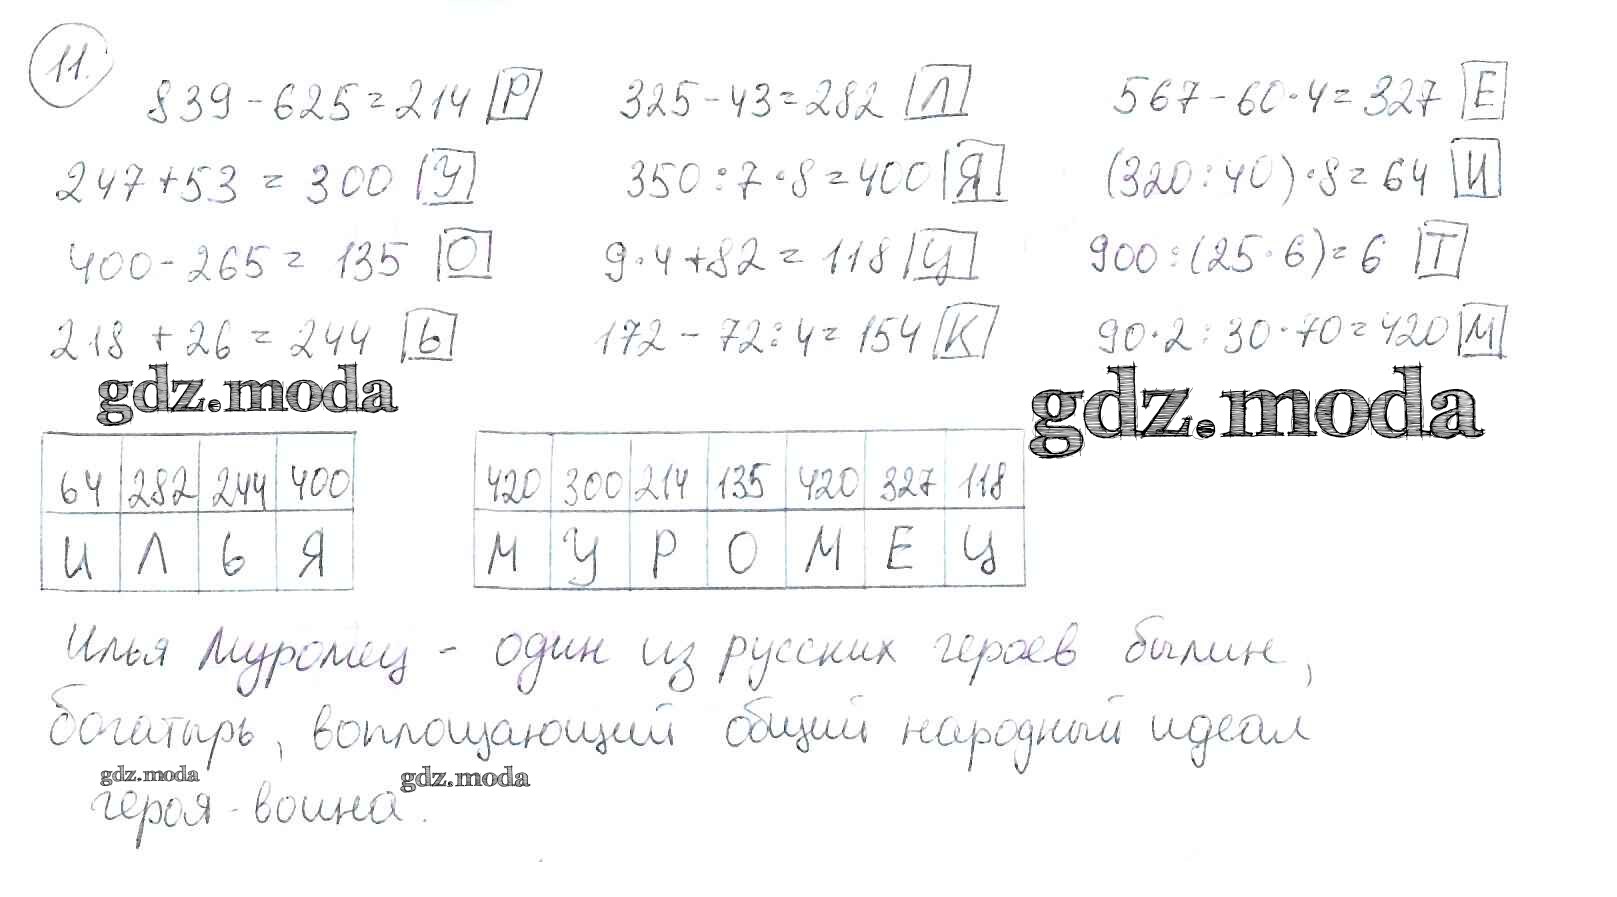 11.
839-625=214 Р 325-43=282 Л 567-60·4=327 Е
247+53=300 У 350:7·8=400 Я (320:40)·8=64 И
400-265=135 О 9·4+82=118 Ц 900:(25·6)=6 Т
218+26=244 Ь 172-72:4=154 К 90·2:30·70=420 М
gdz.moda gdz.moda
64 282 244 400 420 300 214 135 420 327 118
И Л Ь Я М У Р О М Е Ц
Илья Муромец - один из русских героев былин,
богатырь, воплощающий общий народный идеал
gdz.moda gdz.moda
героя-воина.